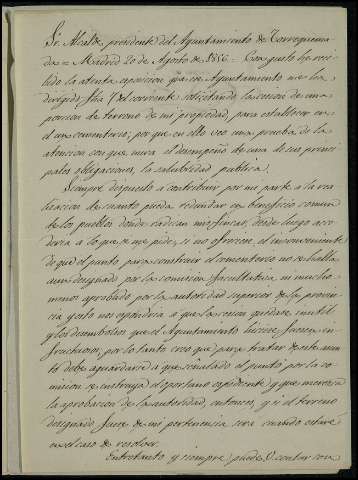 Sr. Alcalde presidente del Ayuntamiento de Torrequema
da = Madrid 20 de Agosto de = Con gusto he reci
bido la atenta esposicion que ese Ayuntamiento me ha
dirigido fha 7 del corriente solicitando la cesion de una
porcion de terreno de mi propiedad, para establecer en
el un cementerio; por que en ello veo una prueba de la
atencion con que mira el desempeño de una de sus princi
pales obligaciones, la salubridad publica.
Siempre dispuesto a contribuir por mi parte a la rea
lizacion de cuanto pueda redundar en beneficio comun
de los pueblos donde radican mis fincas, desde luego acce
deria a lo que se me pide, si no ofreciese el inconveniente
de que el punto para construir el cementerio no se halla
aun designado por la comision facultativa, ni mucho
menos aprobado por la autoridad superior de la provin
cia y esto nos espondria a que la cesion quedase inutil
y los desembolsos que el Ayuntamiento hiciese fuesen in
fructuosos; por lo tanto creo que para tratar de este asun
to debe aguardarse a que señalado el punto por la co
mision se instruya el oportuno espediente y que merezca
la aprobacion de la autoridad, entonces, y si el terreno
designado fuese de mi pertenencia, sera cuando estaré
en el caso de resolver.
Entretanto y siempre puede V. contar con